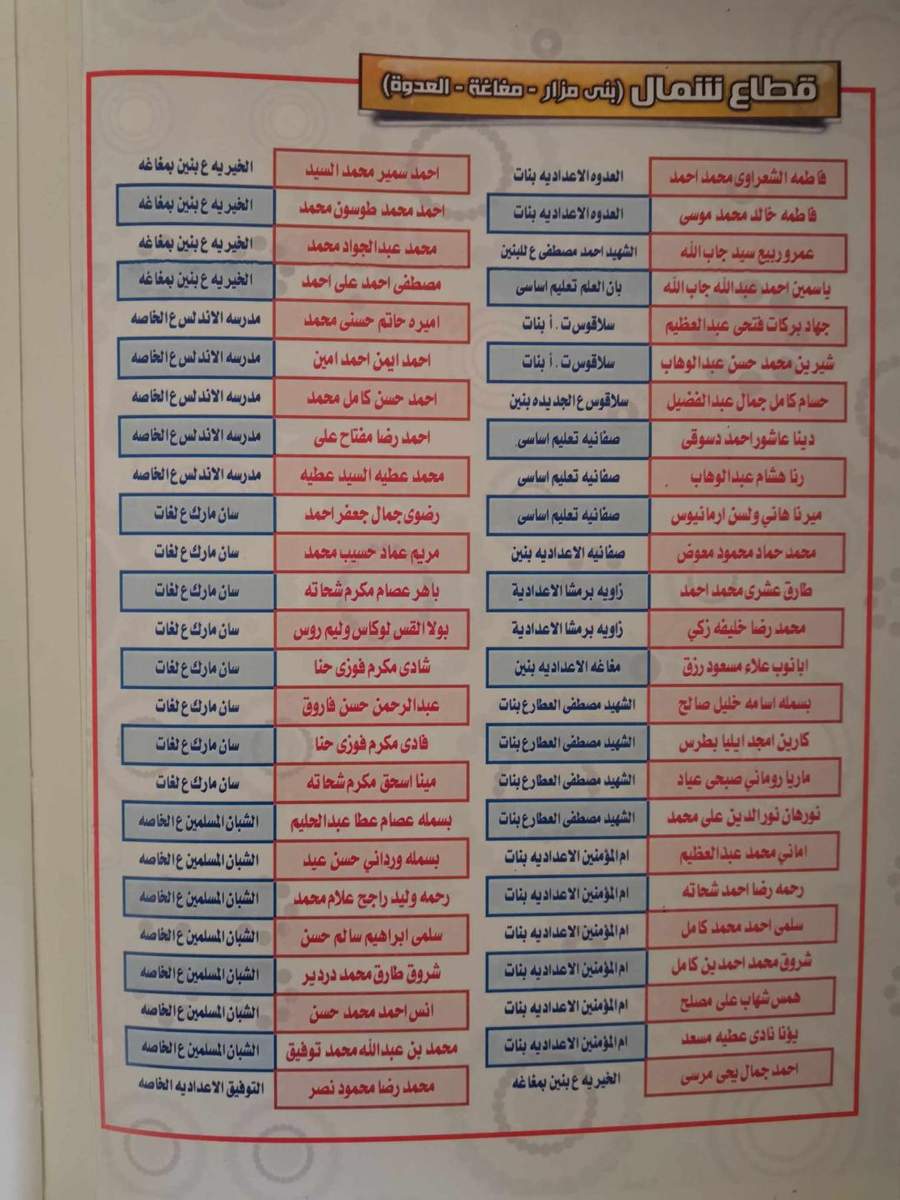 قطاع شمال (بنى مزار - مغاغة - العدوة)
فاطمه الشعراوى محمد احمد العدوه الاعداديه بنات
فاطمه خالد محمد موسى العدوه الاعداديه بنات
عمرو ربيع سيد جاب الله الشهيد احمد مصطفى ع للبنين
ياسمين احمد عبدالله جاب الله بان العلم تعليم اساسى
جهاد بركات فتحى عبدالعظيم سلاقوس ت . أ بنات
شيرين محمد حسن عبدالوهاب سلاقوس ت . أ بنات
حسام كامل جمال عبدالفضيل سلاقوس ع الجديده بنين
دينا عاشور احمد دسوقى صفانيه تعليم اساسى
رنا هشام عبدالوهاب صفانيه تعليم اساسى
ميرنا هاني ولسن ارمانيوس صفانيه تعليم اساسى
محمد حماد محمود معوض صفانيه الاعداديه بنين
طارق عشرى محمد احمد زاويه برمشا الاعدادية
محمد رضا خليفه زكي زاويه برمشا الاعدادية
ابانوب علاء مسعود رزق مغاغه الاعداديه بنين
بسمله اسامه خليل صالح الشهيد مصطفى العطار ع بنات
كارين امجد ايليا بطرس الشهيد مصطفى العطار ع بنات
ماريا روماني صبحى عياد الشهيد مصطفى العطار ع بنات
نورهان نورالدين على محمد الشهيد مصطفى العطار ع بنات
اماني محمد عبدالعظيم ام المؤمنين الاعداديه بنات
رحمه رضا احمد شحاته ام المؤمنين الاعداديه بنات
سلمى احمد محمد كامل ام المؤمنين الاعداديه بنات
شروق محمد احمد بن كامل ام المؤمنين الاعداديه بنات
همس شهاب على مصلح ام المؤمنين الاعداديه بنات
يؤنا نادى عطيه مسعد ام المؤمنين الاعداديه بنات
احمد جمال يحى مرسى الخيريه ع بنين بمغاغه
احمد سمير محمد السيد الخيريه ع بنين بمغاغه
احمد محمد طوسون محمد الخيريه ع بنين بمغاغه
محمد عبدالجواد محمد الخيريه ع بنين بمغاغه
مصطفى احمد على احمد الخيريه ع بنين بمغاغه
اميره حاتم حسنى محمد مدرسه الاندلس ع الخاصه
احمد ايمن احمد امين مدرسه الاندلس ع الخاصه
احمد حسن كامل محمد مدرسه الاندلس ع الخاصه
احمد رضا مفتاح على مدرسه الاندلس ع الخاصه
محمد عطيه السيد عطيه مدرسه الاندلس ع الخاصه
رضوى جمال جعفر احمد سان مارك ع لغات
مريم عماد حسيب محمد سان مارك ع لغات
باهر عصام مكرم شحاته سان مارك ع لغات
بولا القس لوكاس وليم روس سان مارك ع لغات
شادى مكرم فوزى حنا سان مارك ع لغات
عبدالرحمن حسن فاروق سان مارك ع لغات
فادى مكرم فوزى حنا سان مارك ع لغات
مينا اسحق مكرم شحاته سان مارك ع لغات
بسمله عصام عطا عبدالحليم الشبان المسلمين ع الخاصه
بسمله ورداني حسن عيد الشبان المسلمين ع الخاصه
رحمه وليد راجح علام محمد الشبان المسلمين ع الخاصه
سلمى ابراهيم سالم حسن الشبان المسلمين ع الخاصه
شروق طارق محمد دردير الشبان المسلمين ع الخاصه
انس احمد محمد حسن الشبان المسلمين ع الخاصه
محمد بن عبدالله محمد توفيق الشبان المسلمين ع الخاصه
محمد رضا محمود نصر التوفيق الاعداديه الخاصه